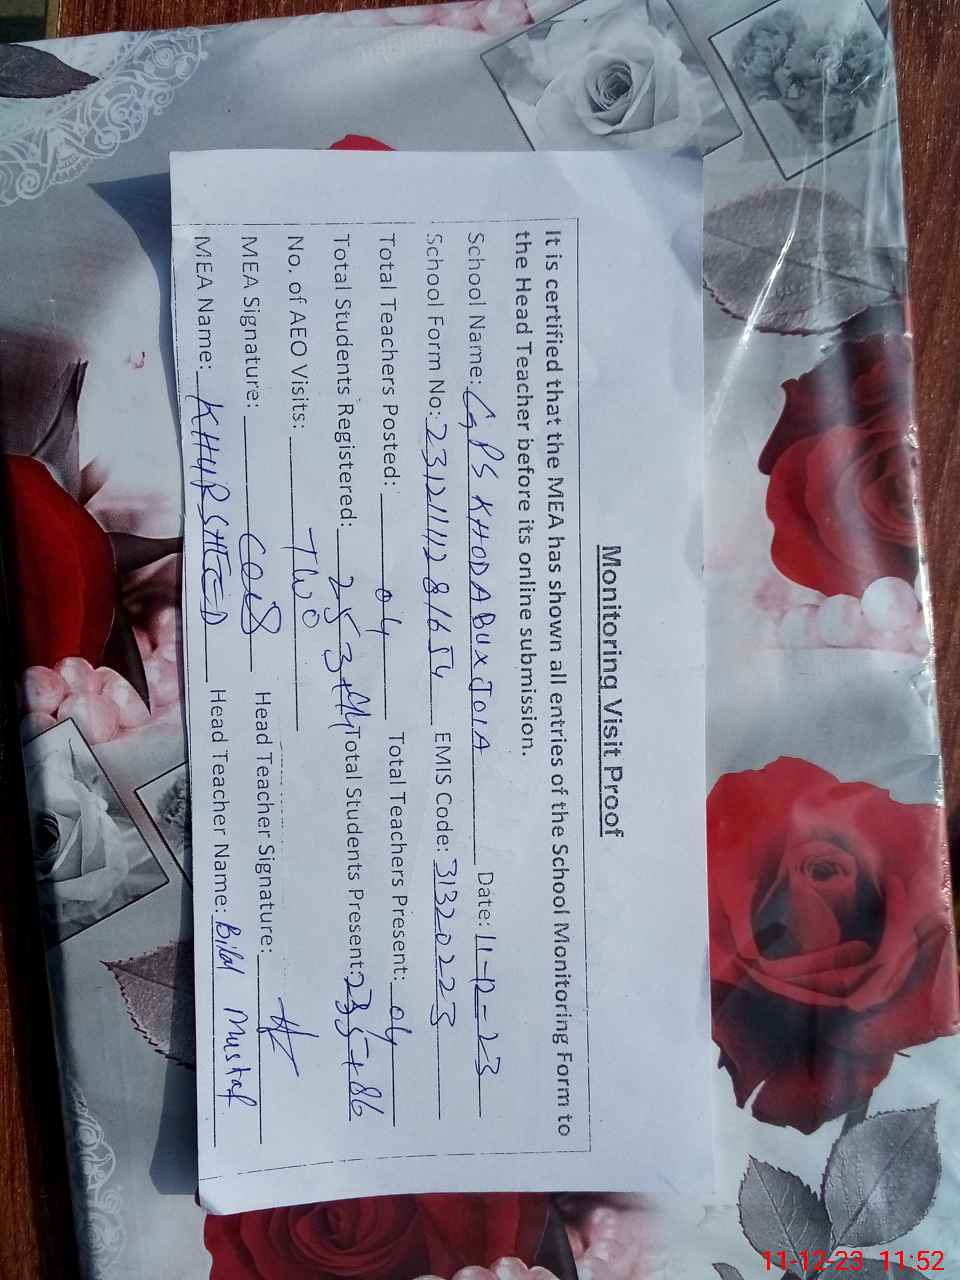 Monitoring Visit Proof
It is certified that the MEA has shown all entries of the School Monitoring Form to
the Head Teacher before its online submission.
School Name: GPS KHODABUX JOIA Date: 11-12-23
School Form No: EMIS Code: 31320223
Total Teachers Posted: 04 Total Teachers Present: 04
Total Students Registered: 253+ Total Students Present: 235+86
No. of AEO Visits: TWO
MEA Signature: Head Teacher Signature:
MEA Name: KHURSHEED Head Teacher Name: Bilal Mustaf
11-12-23 11:52